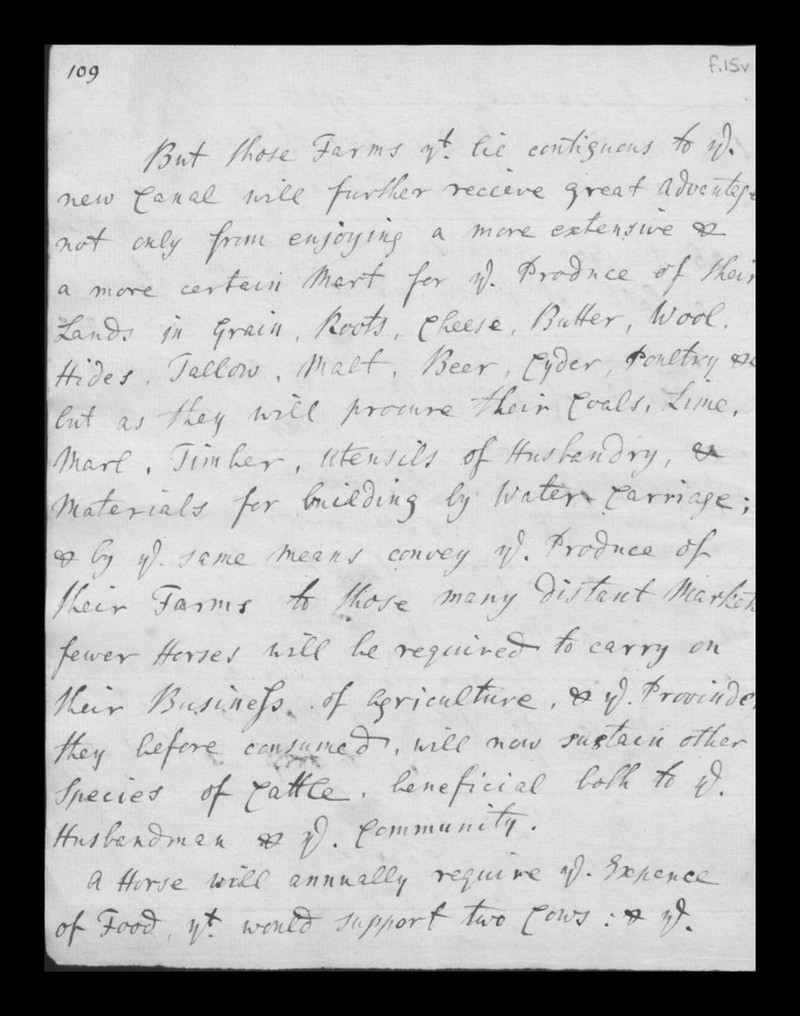 109
f.15v
But those Farms yt. lie contiguous to ye.
new Canal will further recieve great Advantage
not only from enjoying a more extensive &
a more certain Mart for ye. Produce of their
Lands in Grain, Roots, Cheese, Butter, Wool,
Hides, Tallow, Malt, Beer, Cyder, Poultry &c
but as they will procure their Coals, Lime,
Marl, Timber, Utensils of Husbandry, &
Materials for building by Water Carriage;
& by ye. same means convey ye. Produce of
their Farms to those many distant Markets
fewer Horses will be required to carry on
their Business of Agriculture, & ye. Provinder
they before consumed, will now sustain other
Species of Cattle, beneficial both to ye.
Husbandman & ye. Community.
A Horse will annually require ye. Expence
of Food, yt. would support two Cows: & ye.